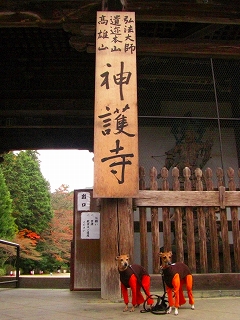 弘法大師
遺迹本山
高雄山
神護寺